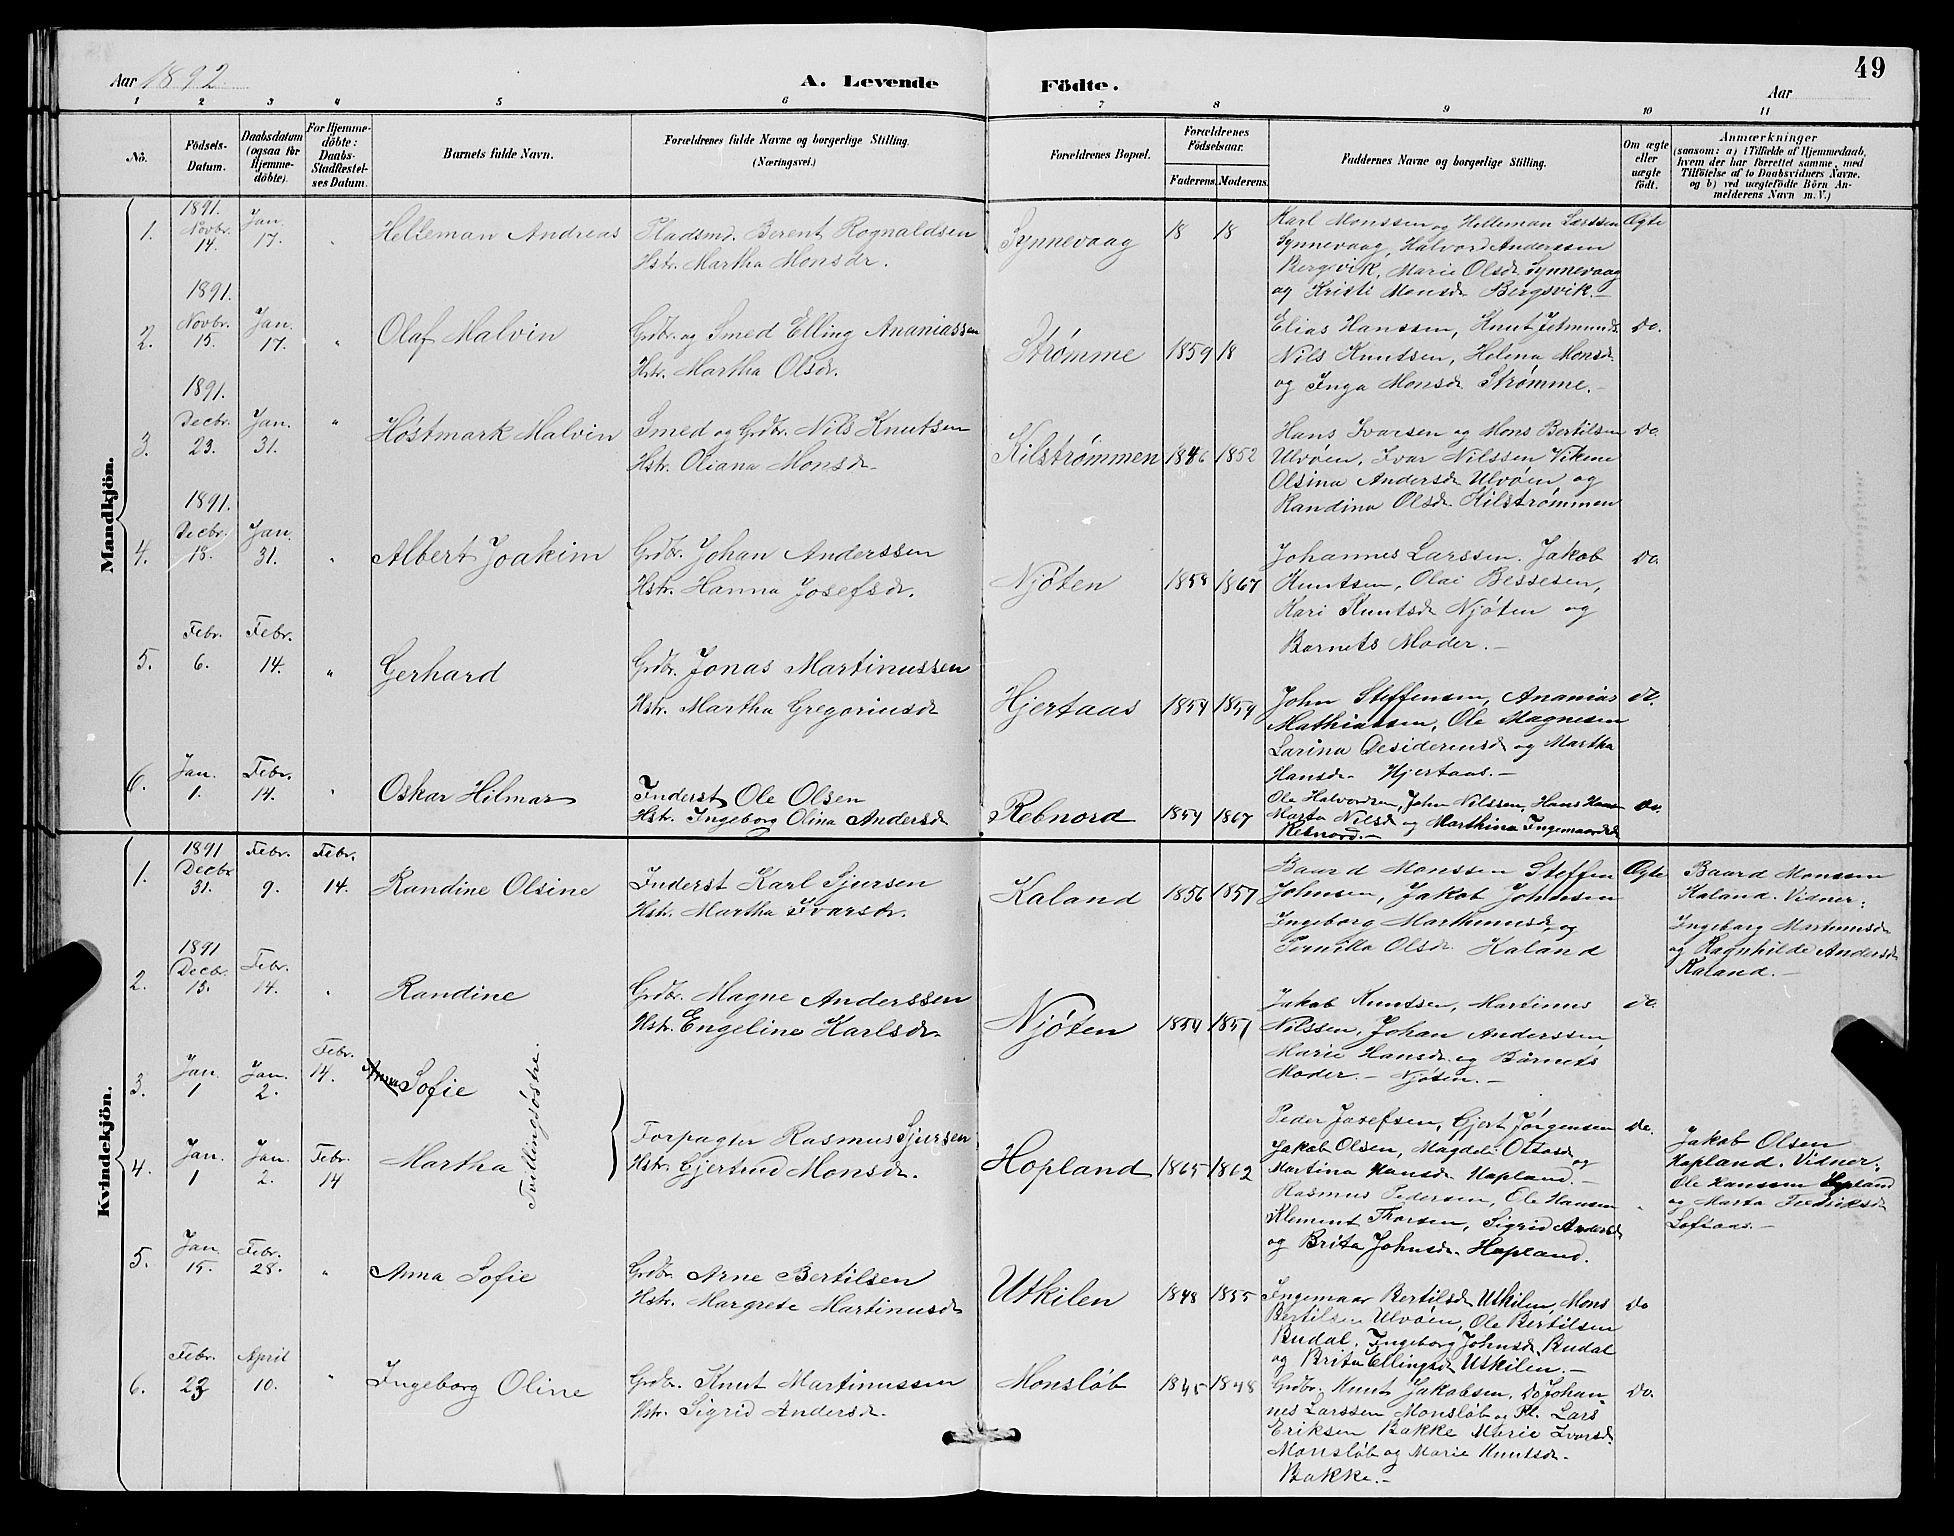 49
Aar 1892
A. Levende Födte.
Aar
1 2 3 4 5 6 7 8 9 10 11
Nö.
Födsels-Datum.
Daabsdatum (ogsaa for Hjemme-döbte).
For Hjemme-döbte: Daabs-Stadfæstel-ses Datum.
Barnets fulde Navn.
Forældrenes fulde Navne og borgerlige Stilling. (Næringsvei.)
Forældrenes Bopæl.
Forældrenes Födselsaar.
Faderens. Moderens.
Faddernes Navne og borgerlige Stilling.
Om ægte eller uægte födt.
Anmærkninger
(saasom: a) i Tilfælde af Hjemmedaab,
hvem der har forrettet samme, med
Tilföielse af to Daabsvidners Navne,
og b) ved uægtefödte Börn An-
melderens Navn m. V.)
Mandkjön.
1. 1891. Novbr. 14. Jan. 17. " Helleman Andreas
Pladsmd. Berent Rognaldsen
Hstr. Martha Monsdr.
Synnevaag 18 18
Karl Monssen og Helleman Larssen
Synnevaag, Halvord Anderssen
Bergsvik, Marie Olsdr Synnevaag
og Kristi Monsdr Bergsvik.-
Ægte
2. 1891. Novbr. 15. Jan. 17. " Olaf Malvin
Grdbr. og Smed Elling Ananiassen
Hstr. Martha Olsdr.
Strømme 1859 18
Elias Hanssen, Knut Jetmunds.
Nils Knutsen, Helena Monsdr
og Inga Monsdr Strømme.-
Do.
3. 1891. Decbr. 23. Jan. 31. " Høstmark Malvin
Smed og Grdbr. Nils Knutsen
Hstr. Oliana Monsdr
Kilstrømmen 1846 1852
Hans Ivarsen og Mons Bertilsen
Ulvøen, Ivar Nilssen Vikene
Olsina Andersdr Ulvøen og
Randina Olsdr Kilstrømmen
Do.
4. 1891. Decbr. 18. Jan. 31. " Albert Joakim
Grdbr. Johan Anderssen
Hstr. Hanna Josefsdr.
Njøten 1858 1867
Johannes Larssen. Jakob
Knutsen, Olai Bessesen,
Kari Knutsdr Njøten og
Barnets Moder.-
Do.
5. Febr. 6. Febr. 14. " Gerhard
Grdbr. Jonas Martinussen
Hstr. Martha Gregoriusdr
Hjertaas 1854 1859
John Steffensen, Ananias
Mathiassen, Ole Magnesen
Larina Desideriusdr og Martha
Hansdr Hjertaas.-
do.
6. Jan. 1. Febr. 14. " Oskar Hilmar
Inderst Ole Olsen
Hstr. Ingeborg Olina Andersdr
Rebnord 1854 1867
Ole Halvordsen, John Nilssen, Hans
Marta Nilsdr og Marthina Ingemaarsdr
Rebnord.-
do.
Kvindekjön.
1. 1891 Decbr 31. Febr. 9. Febr. 14. Randine Olsine
Inderst Karl Sjursen
Hstr. Martha Ivarsdr.
Kaland 1856 1857
Baard Monssen Steffen
Johnsen, Jakob Johnsen
Ingeborg Marthinusdr og
Olsdr Kaland
Ægte
Baard Monssen
Kaland. Vidner:
Ingeborg Martinusdr
og Ragnhilde Andersdr
Kaland.-
2. 1891 Decbr. 13. Febr. 14. " Randine
Grdbr. Magne Anderssen
Hstr. Engeline Karlsdr
Njøten 1854 1857
Jakob Knutsen, Martinus
Nilssen, Johan Anderssen
Marie Hansdr og Barnets
Moder.- Njøten.-
do.
3. Jan. 1 Jan. 2. Febr. 14. Anna Sofie
4. Jan. 1 Jan. 2. Febr 14 Martha
Tvillingsøstre.
Forpagter Rasmus Sjursen
Hstr. Gjertrud Monsdr.
Hopland 1865 1862
Peder Josefsen, Gjert Jørgensen
Jakob Olsen, Magdeli Ottosdr og
Martina Hansdr Hopland.-
Rasmus Pedersen, Ole Hansen
Klement Thorsen, Sigrid Andersdr
og Brita Johnsdr Hopland.
Do.
"
Jakob Olsen
Hopland. Vidner:
Ole Hanssen Hopland
og Marta Fredriksdr
Loftaas.-
5. Jan. 15. Febr. 28. " Anna Sofie
Grdbr. Arne Bertilsen
Hstr. Margrete Martinusdr
Utkilen 1848 1855
Ingemaar Bertilsdr Utkilen, Mons
Bertilsen Ulvøen, Ole Bertilsen
Budal, Ingeborg Johnsdr Budal
og Brita Ellingsdr Utkilen.-
Do
6. Febr. 23 April 10. " Ingeborg Oline
Grdbr. Knut Martinussen
Hstr. Sigrid Andersdr.
Monsløb 1845 1848
Grdbr. Knut Jakobsen, Do Johan-
nes Larssen Monsløb og Pl. Lars
Eriksen Bakke Marie Ivarsdr
Monsløb og Marie Knutsdr
Bakke.-
Do.